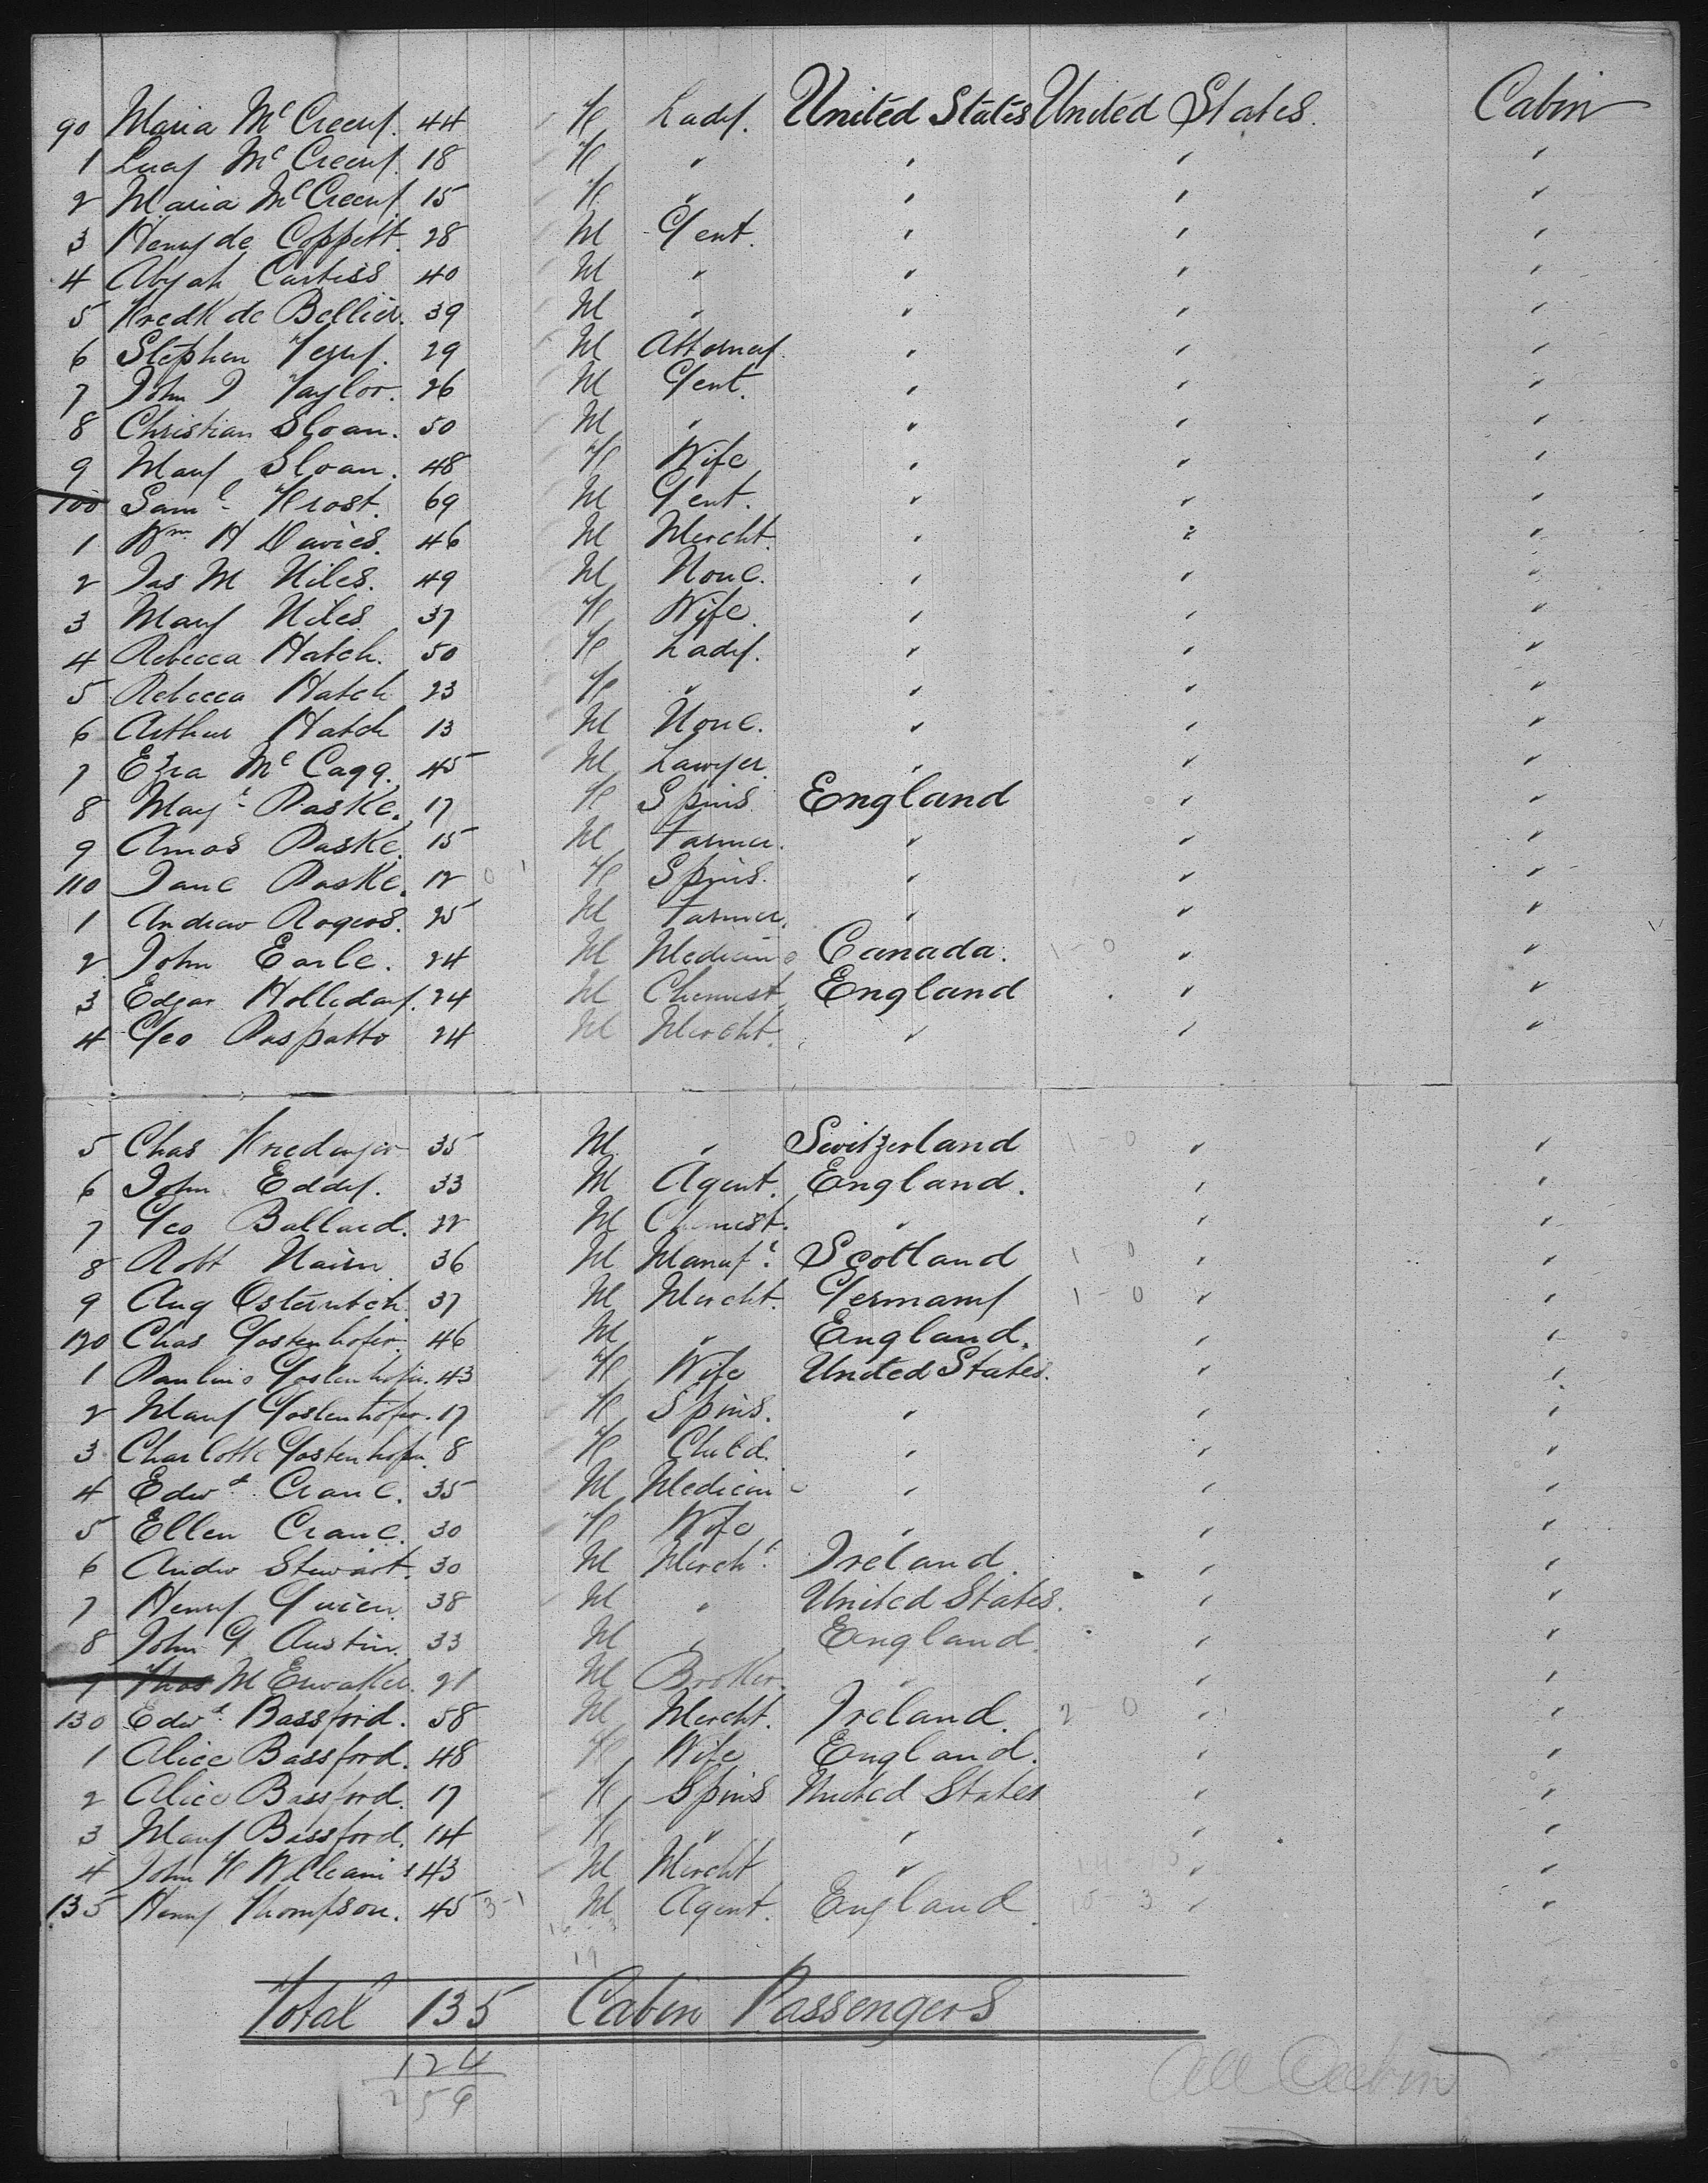 90 Maria McCreery. 44 F Lady. United States United States. Cabin
1 Lucy McCreery. 18 F " " " "
2 Maria McCreery 15 F " " " "
3 Henry de Coppett. 28 M Gent. " " "
4 Abijah Curtiss 40 M " " " "
5 Fredk de Bellier. 39 M " " " "
6 Stephen Terry. 29 M Attorney. " " "
7 John J Taylor. 26 M Gent. " " "
8 Christian Sloan. 50 M " " " "
9 Mary Sloan. 48 F Wife " " "
100 Saml Frost. 69 M Gent. " " "
1 Wm H Davies. 46 M Mercht. " " "
2 Jas M Niles. 49 M None. " " "
3 Mary Niles 37 F Wife. " " "
4 Rebecca Hatch. 50 F Lady. " " "
5 Rebecca Hatch 23 F " " " "
6 Arthur Hatch 13 M None. " " "
7 Ezra McCagg. 45 M Lawyer. " " "
8 Magt Paske. 17 F Spins England " "
9 Amos Paske. 15 M Farmer. " " "
110 Jane Paske. 12 F Spins. " " "
1 Andrew Rogers. 25 M Farmer. " " "
2 John Earle. 24 M Medicine Canada. 1-0 " "
3 Edgar Holliday. 24 M Chemist England " "
4 Geo Paspatto 24 M Mercht. " " "
5 Chas 35 M " Switzerland 1-0 " "
6 John Eddy. 33 M Agent. England. " "
7 Geo Bullard. 32 M Chemist. " " "
8 Robt Nairn 36 M Manufr. Scotland 1 0 " "
9 Aug 37 M Mercht. Germany 1-0 " "
120 Chas Gostenhofer. 46 M " England. " "
1 Pauline Gostenhofer. 43 F Wife United States. " "
2 Mary Gostenhofer. 17 F Spins. " " "
3 Charlotte Gostenhofer. 8 F Child. " " "
4 Edwd Crane. 35 M Medicine " " "
5 Ellen Crane. 30 F Wife " " "
6 Andw Stewart. 30 M Mercht. Ireland. " "
7 Henry 38 M " United States. " "
8 John G Austin. 33 M " England. " "
9 Thos M Ewaker. 21 M Broker. " " "
130 Edwd Bassford. 58 M Mercht. Ireland. 2 0 " "
1 Alice Bassford. 48 F Wife England. " "
2 Alice Bassford. 17 F Spins United States " "
3 Mary Bassford. 14 F " " " "
4 John F Williams 43 M Mercht " " "
135 Henry Thompson. 45 3-1 M Agent. England 15-3 " "
19
Total 135 Cabin Passengers
124
259
All Cabin